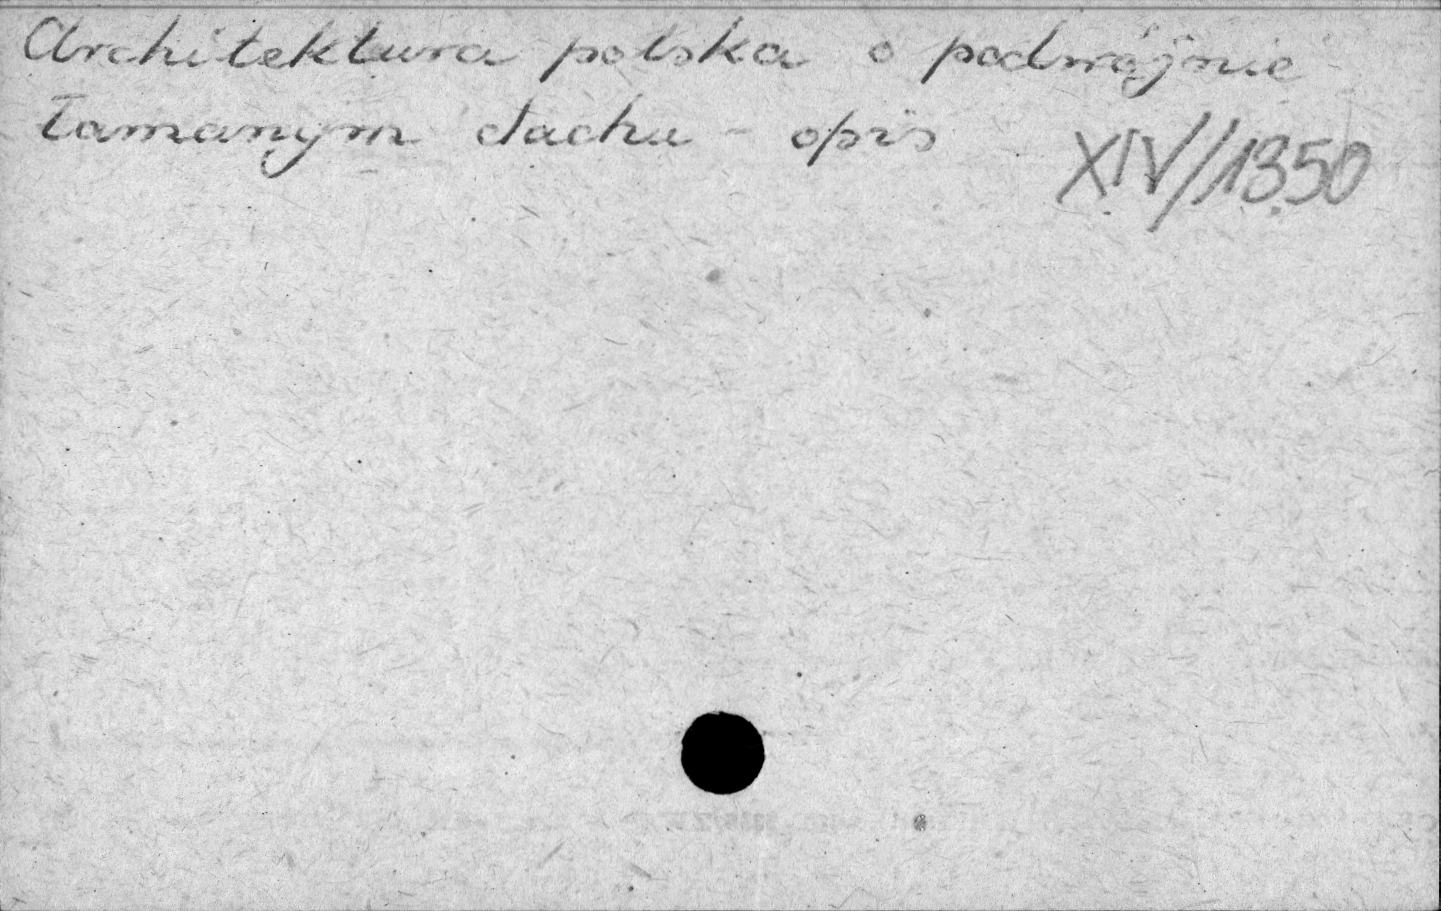 Architektura polska o podwójnie
łamanym dachu - opis
XIV//1350